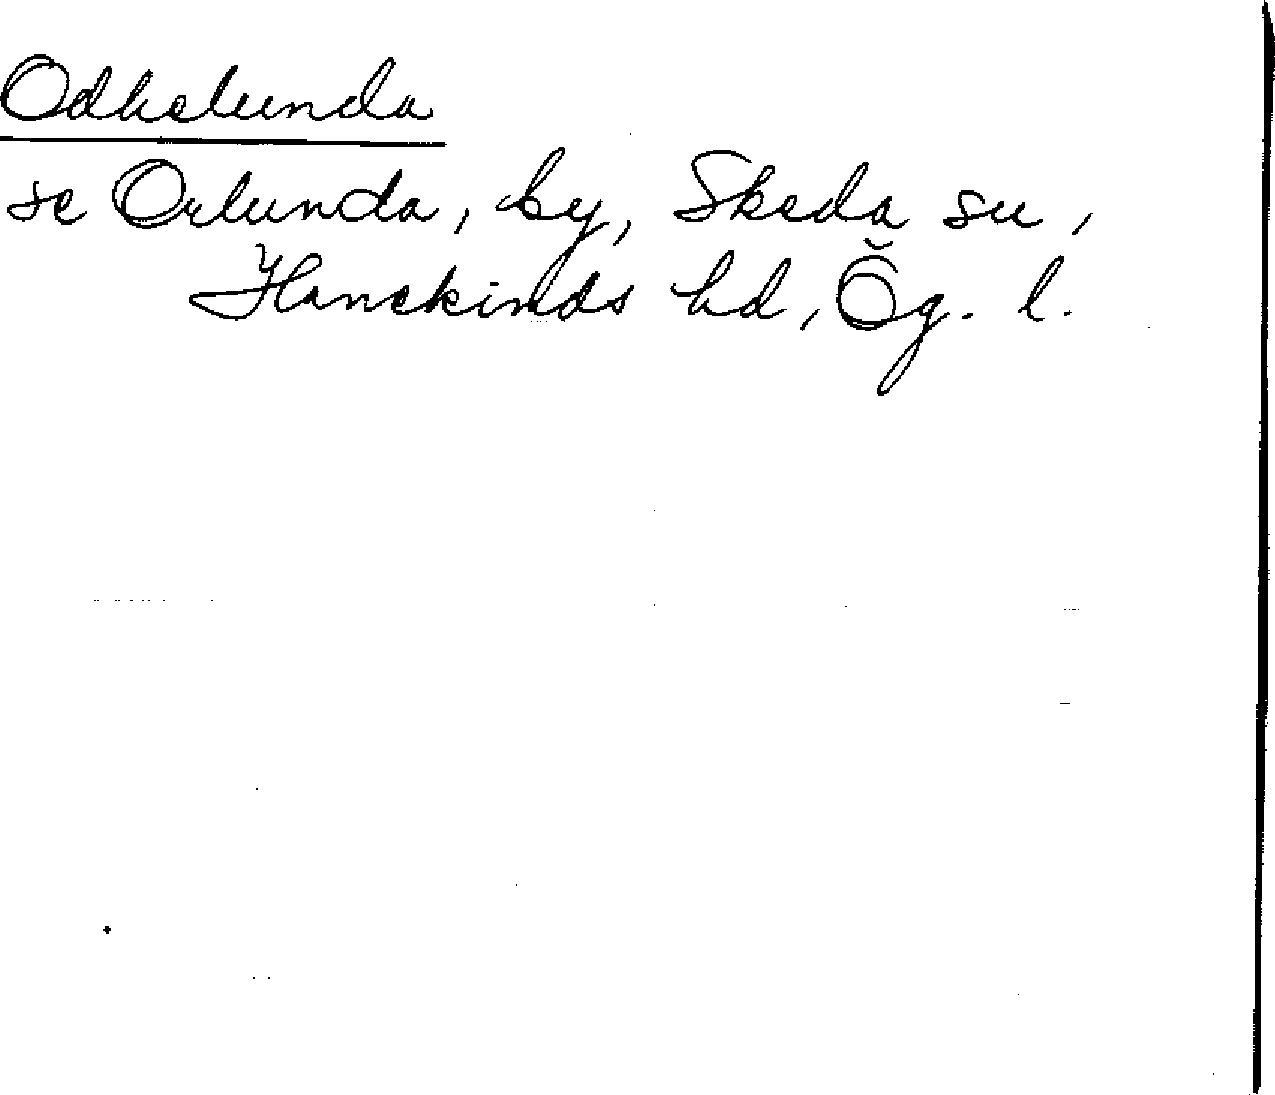 Odhslunda
se Orlunda, by, Skeda sn,
Hanekinds hd, Ög. l.